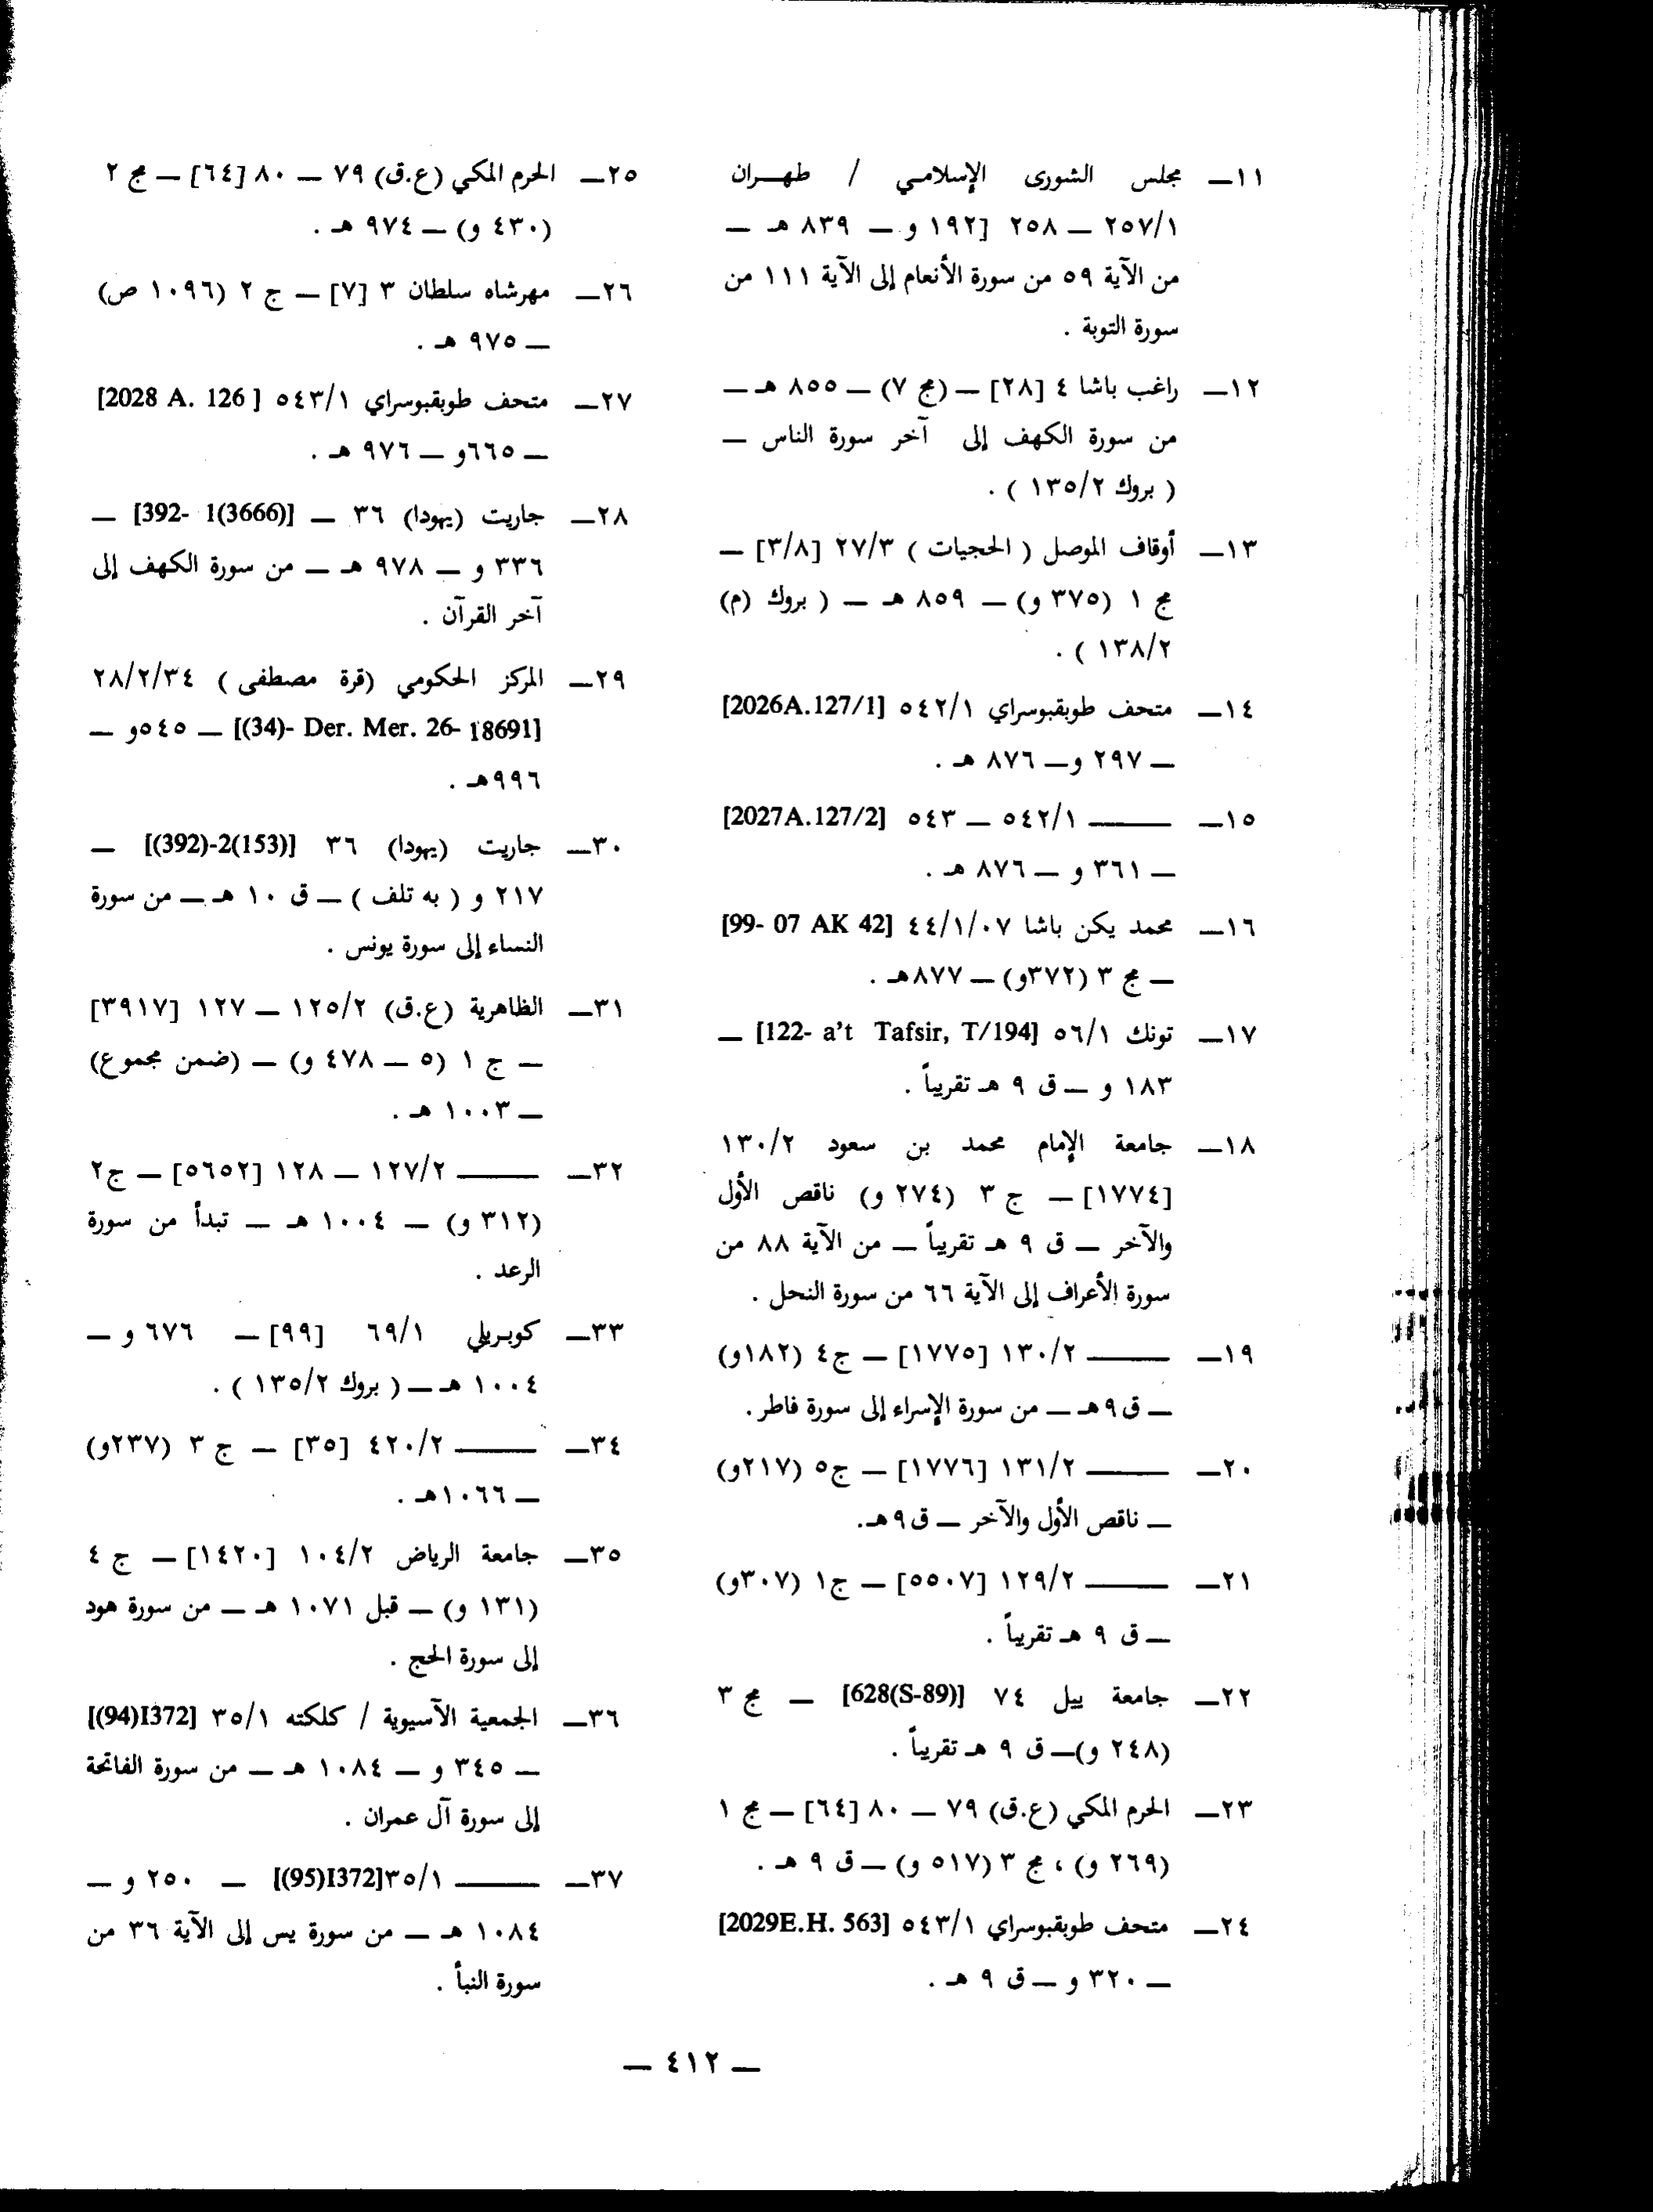 ١١ــ مجلس الشورى الإسلامي / طهـــران
٢٥٧/١ ــ ٢٥٨ [١٩٢ و ــ ٨٣٩ هـ ــ
من الآية ٥٩ من سورة الأنعام إلى الآية ١١١ من
سورة التوبة .
١٢ــ راغب باشا ٤ [٢٨] ــ (مج ٧) ــ ٨٥٥ هـ ــ
من سورة الكهف إلى آخر سورة الناس ــ
( بروك ١٣٥/٢ ) .
١٣ــ أوقاف الموصل ( الحجيات ) ٢٧/٣ [٣/٨] ــ
مج ١ (٣٧٥ و) ــ ٨٥٩ هـ ــ ( بروك (م)
١٣٨/٢ ) .
١٤ــ متحف طوبقبوسراي ٥٤٢/١ [2026A.127/1]
ــ ٢٩٧ وــ ٨٧٦ هـ .
١٥ــ ــــــــ ٥٤٢/١ ــ ٥٤٣ [2027A.127/2]
ــ ٣٦١ و ــ ٨٧٦ هـ .
١٦ــ محمد يكن باشا ٤٤/١/٠٧ [99- 07 AK 42]
ــ مج ٣ (٣٧٢و) ــ ٨٧٧هـ .
١٧ــ تونك ٥٦/١ [122- a't Tafsir, T/194] ــ
١٨٣ و ــ ق ٩ هـ تقريباً .
١٨ــ جامعة الإمام محمد بن سعود ١٣٠/٢
[١٧٧٤] ــ ج ٣ (٢٧٤ و) ناقص الأول
والآخر ــ ق ٩ هـ تقريباً ــ من الآية ٨٨ من
سورة الأعراف إلى الآية ٦٦ من سورة النحل .
١٩ــ ــــــــ ١٣٠/٢ [١٧٧٥] ــ ج٤ (١٨٢و)
ــ ق ٩هـ ــ من سورة الإسراء إلى سورة فاطر .
٢٠ــ ــــــــ ١٣١/٢ [١٧٧٦] ــ ج٥ (٢١٧و)
ــ ناقص الأول والآخر ــ ق ٩هـ.
٢١ــ ــــــــ ١٢٩/٢ [٥٥٠٧] ــ ج١ (٣٠٧و)
ــ ق ٩ هـ تقريباً .
٢٢ــ جامعة ييل ٧٤ [628(S-89)] ــ مج ٣
(٢٤٨ و)ــ ق ٩ هـ تقريباً .
٢٣ــ الحرم المكي (ع.ق) ٧٩ ــ ٨٠ [٦٤] ــ مج ١
(٢٦٩ و) ، مج ٣ (٥١٧ و) ــ ق ٩ هـ .
٢٤ــ متحف طوبقبوسراي ٥٤٣/١ [2029E.H. 563]
ــ ٣٢٠ و ــ ق ٩ هـ .
٢٥ــ الحرم المكي (ع.ق) ٧٩ ــ ٨٠ [٦٤] ــ مج ٢
(٤٣٠ و) ــ ٩٧٤ هـ .
٢٦ــ مهرشاه سلطان ٣ [٧] ــ ج ٢ (١٠٩٦ ص)
ــ ٩٧٥ هـ .
٢٧ــ متحف طوبقبوسراي ٥٤٣/١ [2028 A. 126 ]
ــ ٦٦٥و ــ ٩٧٦ هـ .
٢٨ــ جاريت (يهودا) ٣٦ ــ [392- 1(3666)] ــ
٣٣٦ و ــ ٩٧٨ هـ ــ من سورة الكهف إلى
آخر القرآن .
٢٩ــ المركز الحكومي (قرة مصطفى ) ٢٨/٢/٣٤
[(34)- Der. Mer. 26- 18691] ــ ٥٤٥و ــ
٩٩٦هـ .
٣٠ــ جاريت (يهودا) ٣٦ [(392)-2(153)] ــ
٢١٧ و ( به تلف ) ــ ق ١٠ هـ ــ من سورة
النساء إلى سورة يونس .
٣١ــ الظاهرية (ع.ق) ١٢٥/٢ ــ ١٢٧ [٣٩١٧]
ــ ج ١ (٥ ــ ٤٧٨ و) ــ (ضمن مجموع)
ــ ١٠٠٣ هـ .
٣٢ــ ــــــــ ١٢٧/٢ ــ ١٢٨ [٥٦٥٢] ــ ج٢
(٣١٢ و) ــ ١٠٠٤ هـ ــ تبدأ من سورة
الرعد .
٣٣ــ كوبريلي ٦٩/١ [٩٩] ــ ٦٧٦ و ــ
١٠٠٤ هـ ــ ( بروك ١٣٥/٢ ) .
٣٤ــ ــــــــ ٤٢٠/٢ [٣٥] ــ ج ٣ (٢٣٧و)
ــ ١٠٦٦هـ .
٣٥ــ جامعة الرياض ١٠٤/٢ [١٤٢٠] ــ ج ٤
(١٣١ و) ــ قبل ١٠٧١ هـ ــ من سورة هود
إلى سورة الحج .
٣٦ــ الجمعية الآسيوية / كلكته ٣٥/١ [(94)I372]
ــ ٣٤٥ و ــ ١٠٨٤ هـ ــ من سورة الفاتحة
إلى سورة آل عمران .
٣٧ــ ــــــــ ٣٥/١[(95)I372] ــ ٢٥٠ و ــ
١٠٨٤ هـ ــ من سورة يس إلى الآية ٣٦ من
سورة النبأ .
ــ ٤١٢ ــ